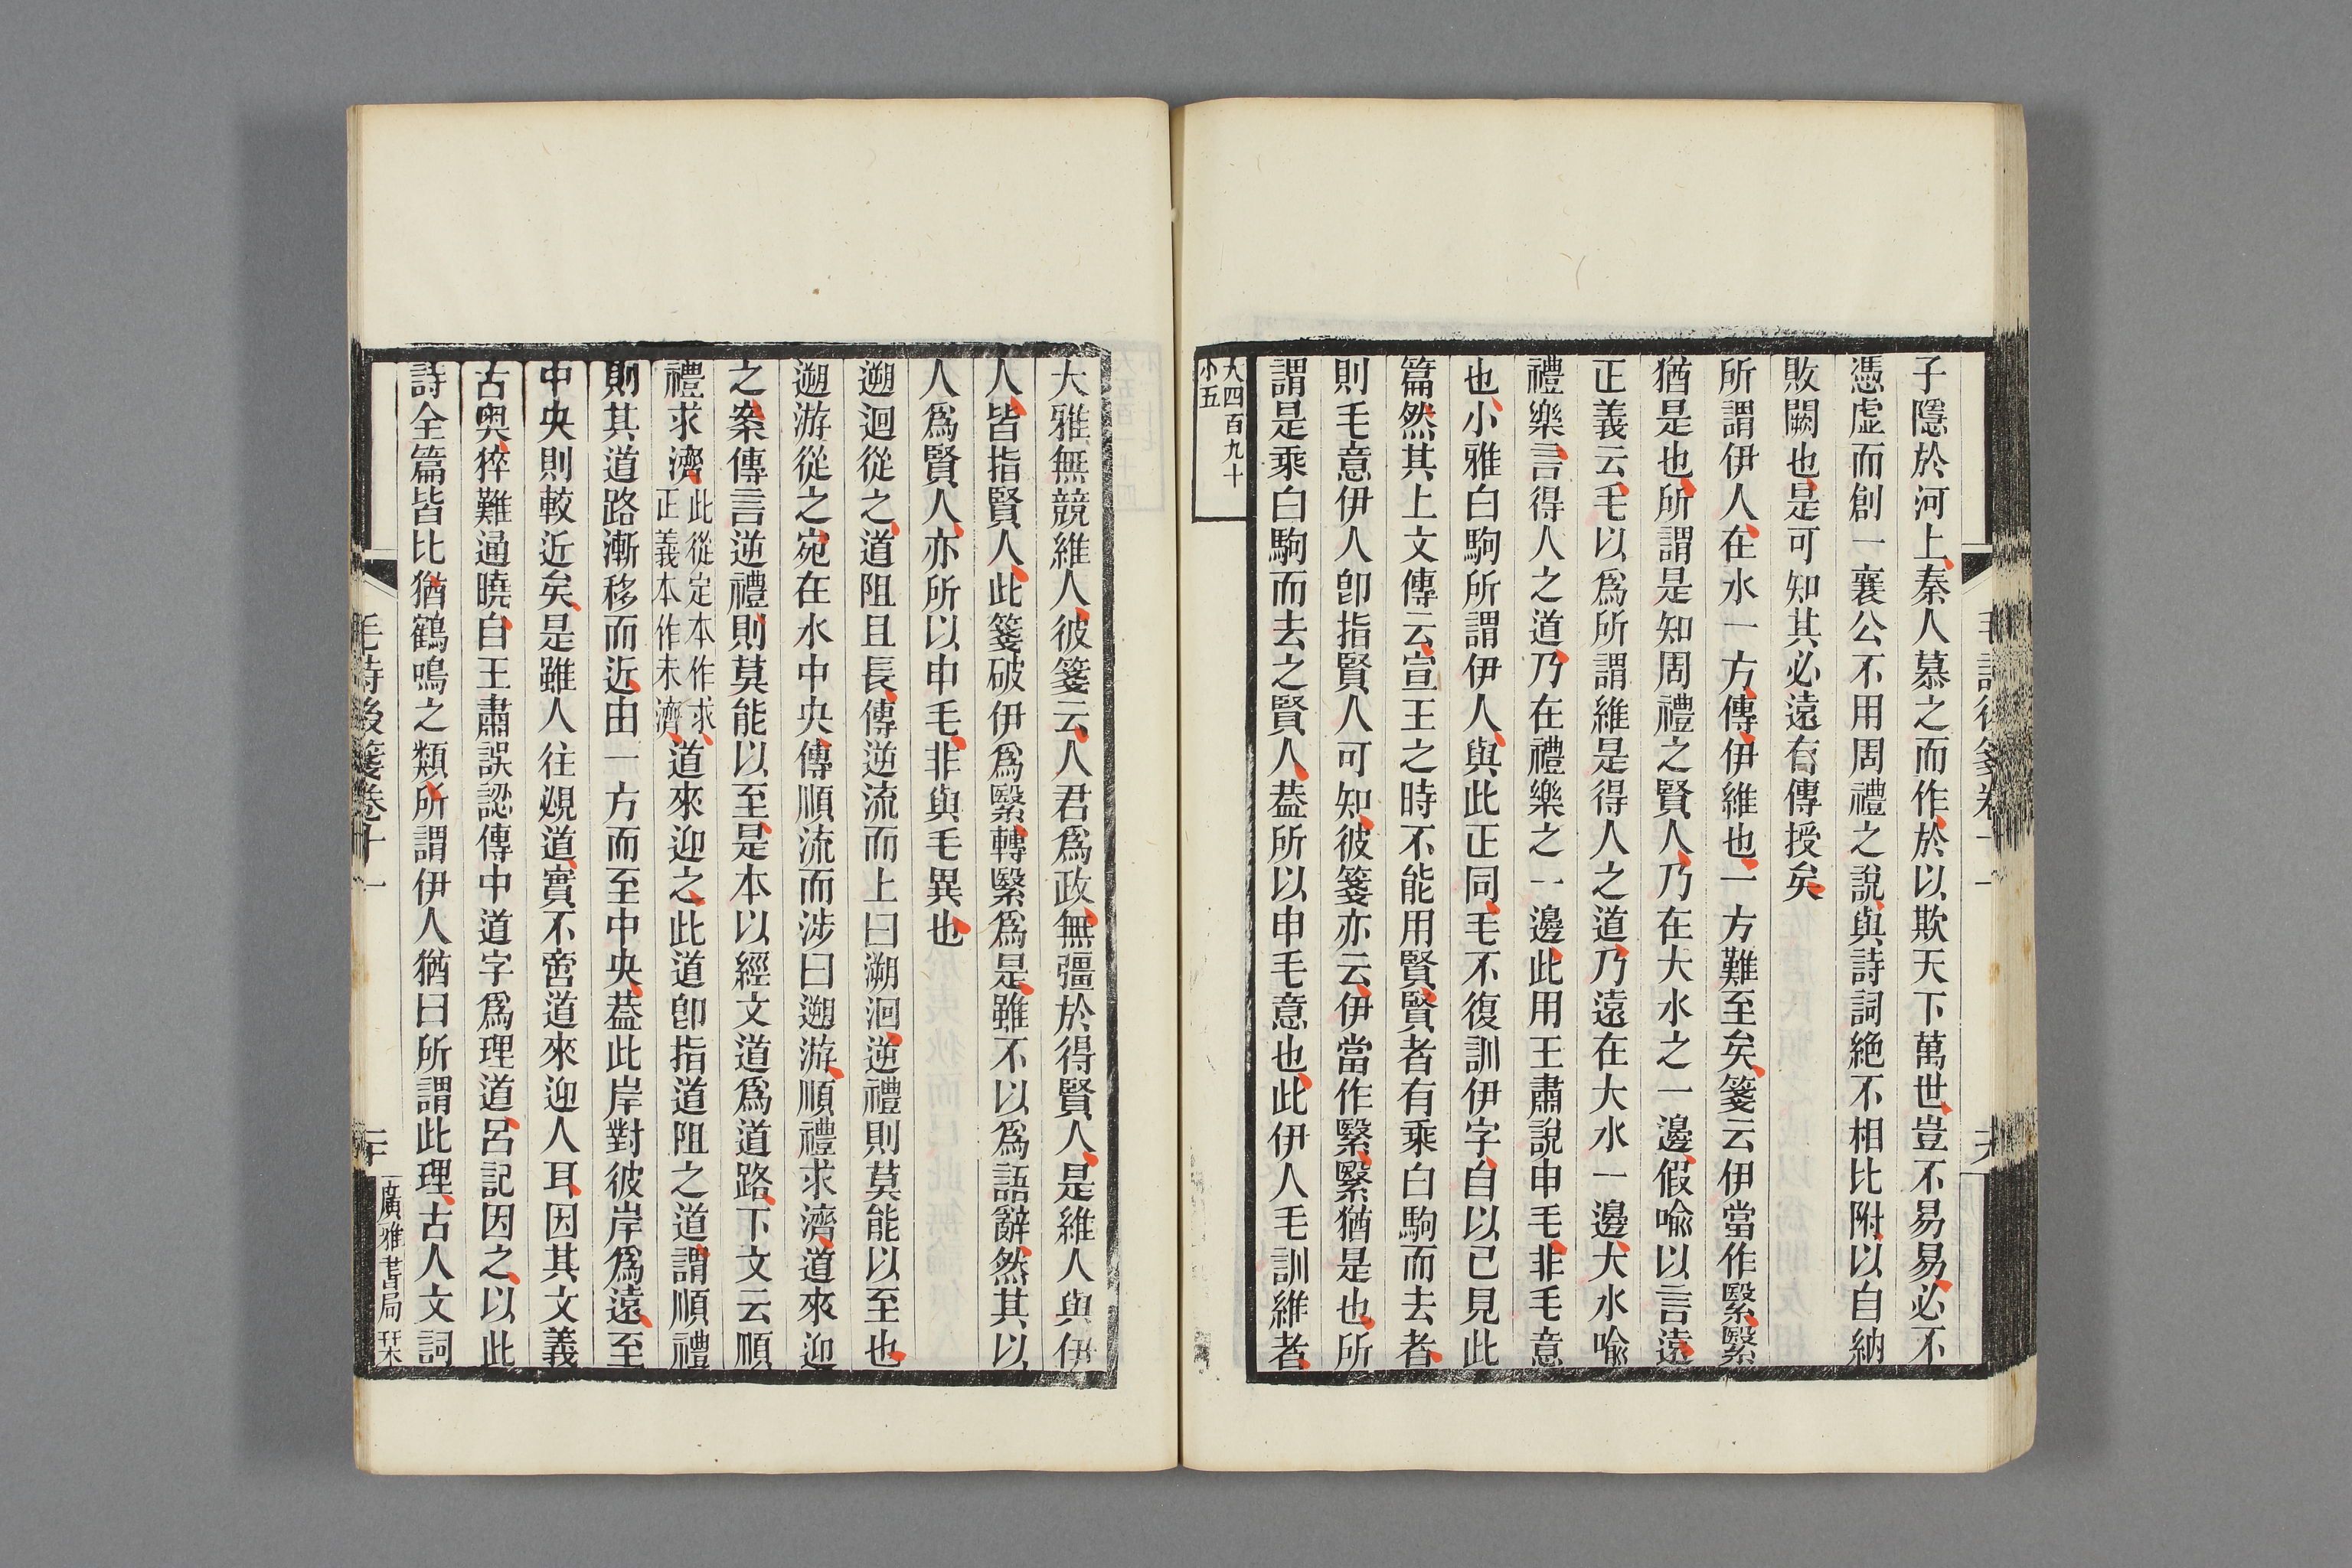 子隱於河上秦人慕之而作於以欺天下萬世豈不易易必不
憑虛而創一襄公不用周禮之說與詩詞絶不相比附以自納
敗闕也是可知其必遠有傳授矣
所謂伊人在水一方傳伊維也一方難至矣箋云伊當作緊緊
猶是也所謂是知周禮之賢人乃在大水之一邊假喻以言遠
正義云毛以爲所謂維是得人之道乃遠在大水一邊大水喻
禮樂言得人之道乃在禮樂之一邊此用王肅說申毛非毛意
也小雅白駒所謂伊人與此正同毛不復訓伊字自以已見此
篇然其上文傳云宣王之時不能用賢賢者有乘白駒而去者
則毛意伊人卽指賢人可知彼箋亦云伊當作緊緊猶是也所
謂是乘白駒而去之賢人葢所以申毛意也此伊人毛訓維者
大四百九十
小五
大雅無競維人彼箋云人君爲政無彊於得賢人是維人與伊
人皆指賢人此箋破伊爲緊轉緊爲是雖不以爲語辭然其以
人爲賢人亦所以申毛非與毛異也
遡迴從之道阻且長傳逆流而上曰遡洄逆禮則莫能以至也
遡游從之宛在水中央傳順流而涉曰遡游順禮求濟道來迎
之案傳言逆禮則莫能以至是本以經文道爲道路下文云順
禮求濟此從定本作求正義本作未濟道來迎之此道卽指道阻之道謂順禮
則其道路漸移而近由一方而至中央葢此岸對彼岸爲遠至
中央則較近矣是雖人往覡道實不啻道來迎人耳因其文義
古奥猝難通曉自王肅誤認傳中道字爲理道呂記因之以此
詩全篇皆比猶鶴鳴之類所謂伊人猶曰所謂此理古人文詞
毛詩後箋卷十一
二十
廣雅書局栞